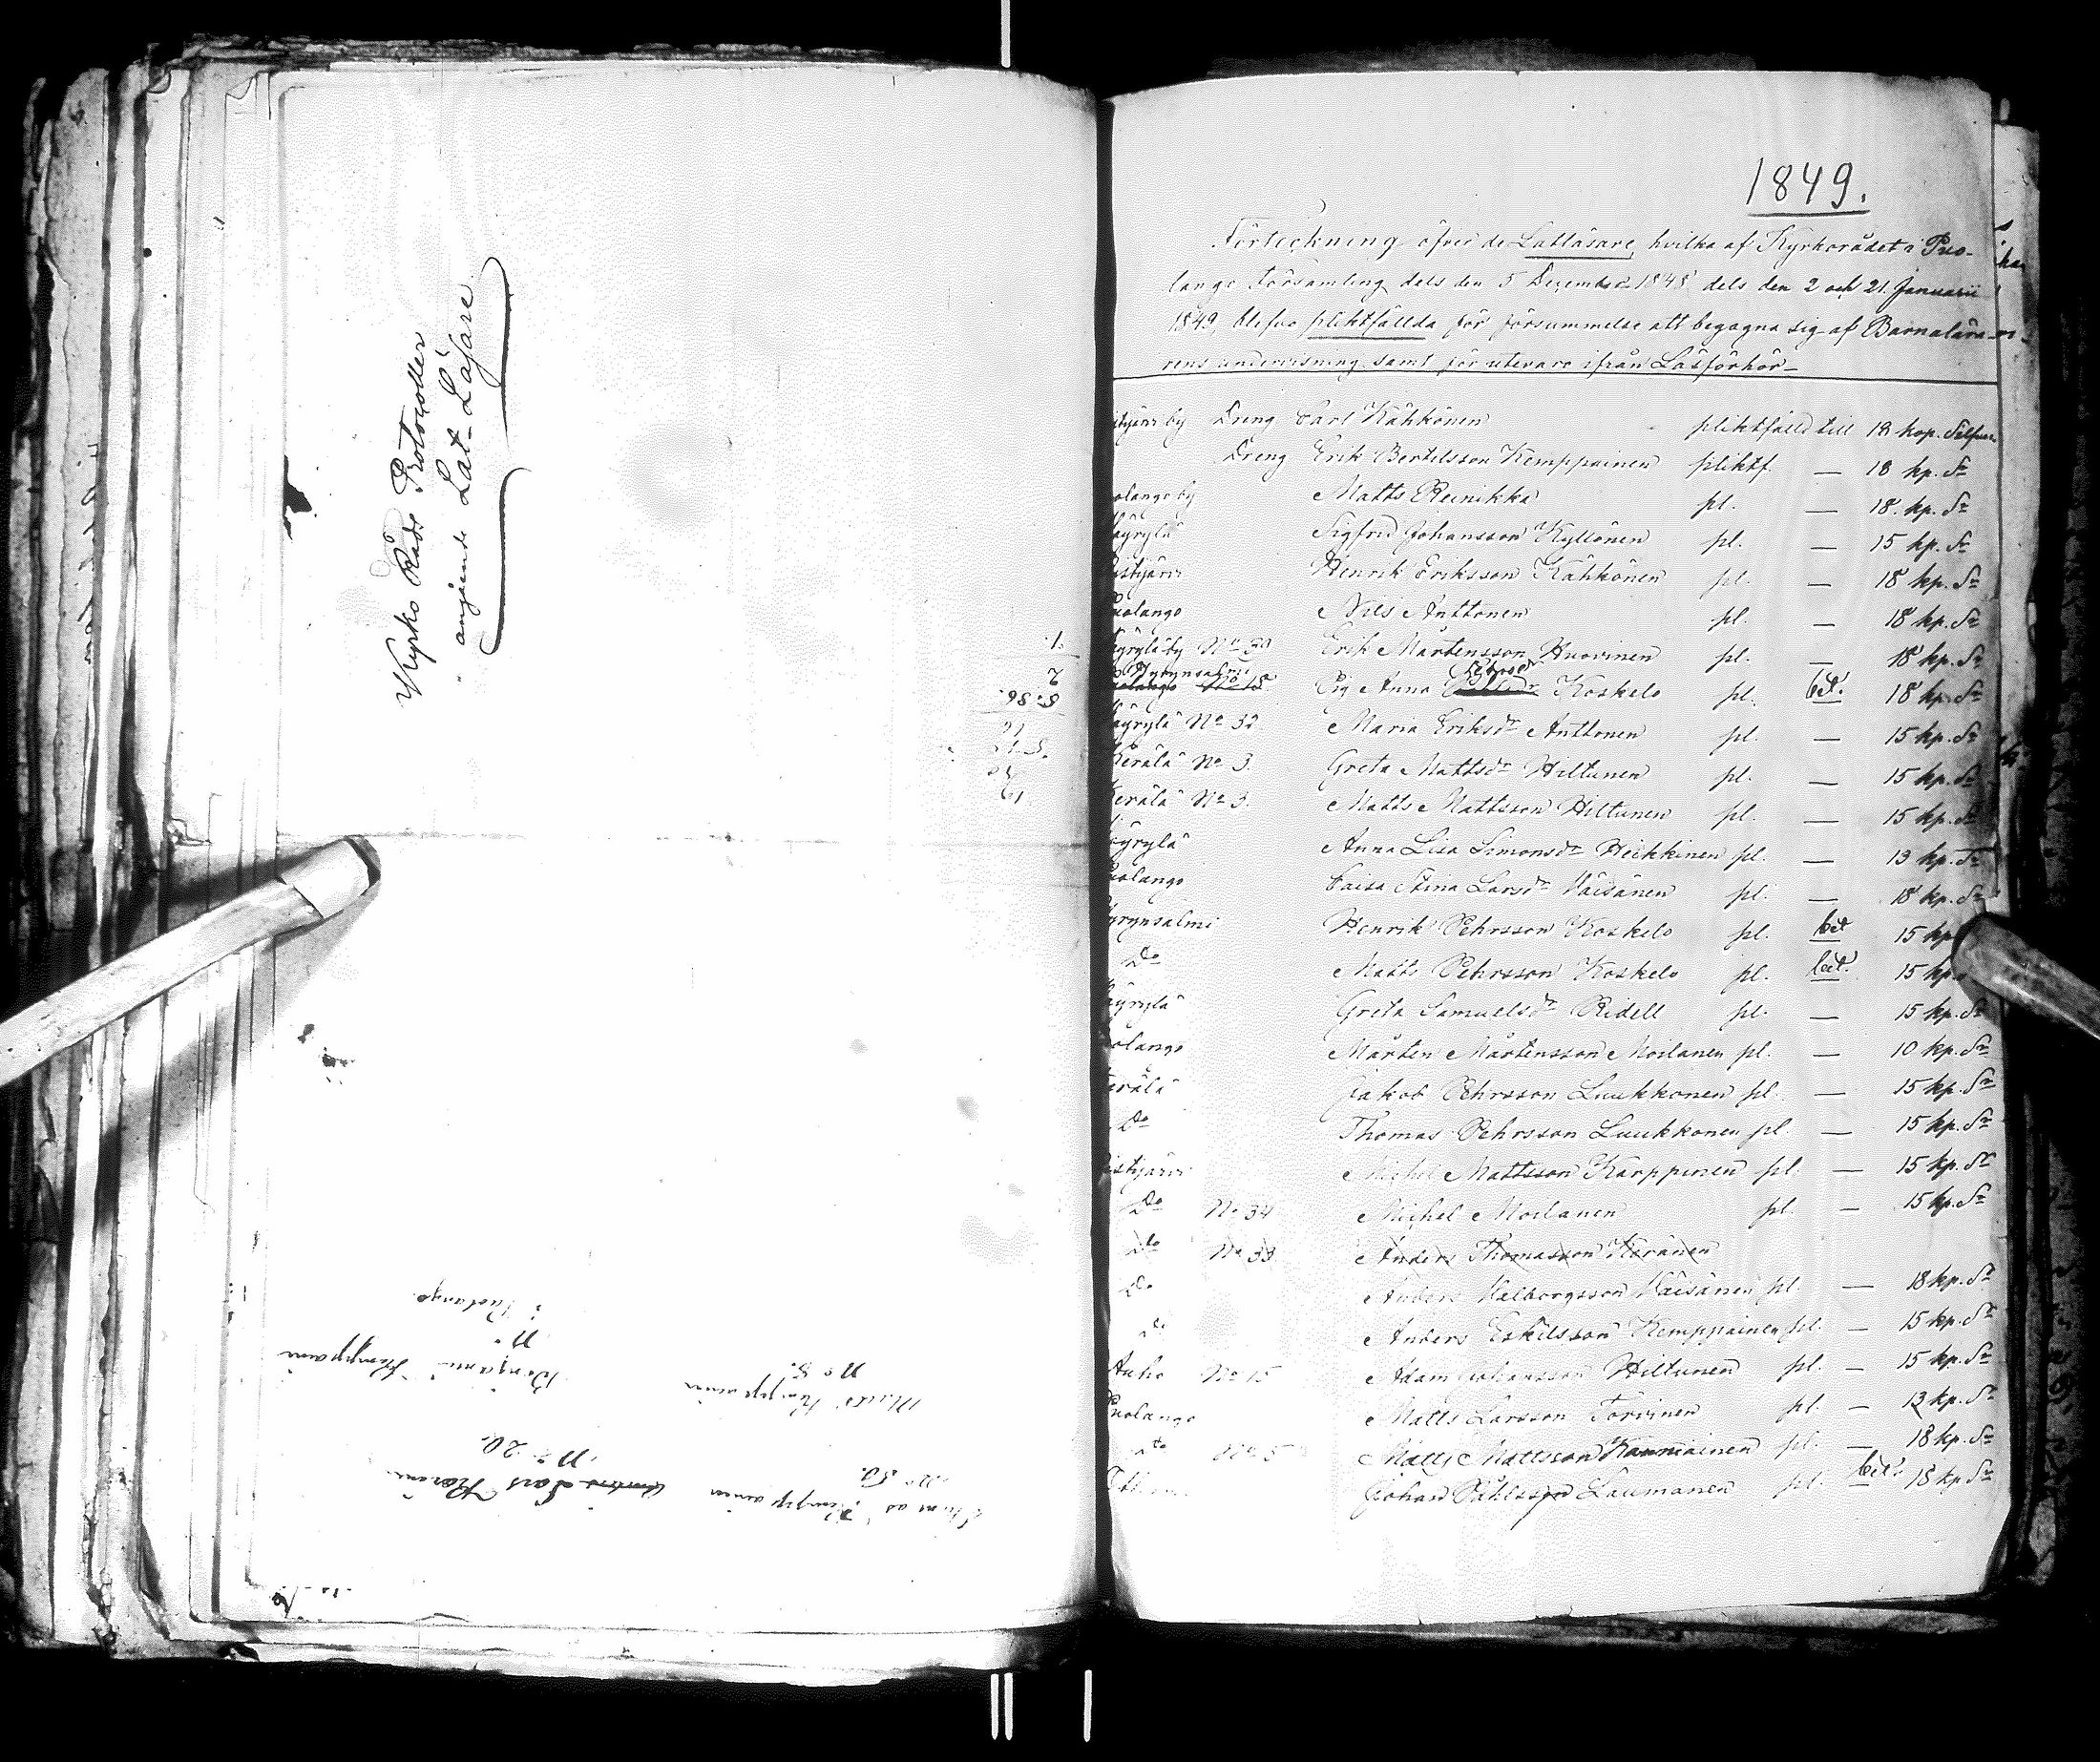 Kyrko Råds Protocoller
angående Lat-Läsare
i Puolango
Benjam Kemppain
Matts Kemppain
No 5.
No 20.
Lars
Kemppainen
No 50.
1849.
Förteckning öfver de Latläsare, hvilka af Kyrkorådet i Puo-
lango Församling dels den 5 December 1848 dels den 2 och 21 Januarii
1849, blefvo pliktfällda för försummelse att begagna sig af Barnalära-
rens undervisning samt för utevaro ifrån Läsförhör_
by Dreng Carl Kähkönen pliktfälld till 18 kop. Silfver
Dreng Erik Bertilsson Kemppainen pliktf. — 18 kp. Sr
olango by Matts Reinikka pl. — 18. kp. Sr
äyrylä Sigfrid Johansson Kyllönen pl. — 15 kp. Sr
istijärvi Henrik Eriksson Kähkönen pl. — 18 kp. Sr
uolango Nils Anttonen pl. — 18 kp. Sr
äyrylä by No 50 Erik Mårtensson Huovinen pl. — 18 kp. Sr
Hyrynsalmi
uolango No 18 Pig Anna Koskelo pl. bet. 18 kp. Sr
äyrylä No 32 Maria Eriksdr Anttonen pl. — 15 kp. Sr
Kerälä No 3. Greta Mattsdr Hiltunen pl. — 15 kp. Sr
erälä No 3. Matts Mattsson Hiltunen pl. — 15 kp. Sr
äyrylä Anna Lisa Simonsdr Heikkinen pl. — 13 kp. Sr
uolango Caisa Stina Larsdr Väisänen pl. — 18 kp. Sr
yrynsalmi Henrik Pehrsson Koskelo pl. bet 15 kp
Do Matts Pehrsson Koskelo pl. bet. 15 kp.
äyrylä Greta Samuelsdr Ridell pl. — 15 kp. Sr
olango Mårten Mårtensson Moilanen pl. — 10 kp. Sr
erälä Jakob Pehrsson Luukkonen pl. — 15 kp. Sr
Do Thomas Pehrsson Luukkonen pl. — 15 kp. Sr
istijärvi Michel Mattsson Karppinen pl. — 15 kp. Sr
Do No 34 Michel Moilanen pl. — 15 kp. Sr
Do No 33 Anders Thomasson Karänen
Do Anders Valborgsson Väisänen pl. — 18 kp. Sr
Do Anders Eskilsson Kemppainen pl. — 15 kp. Sr
Auho No 15 Adam Johansson Hiltunen pl. — 15 kp. Sr
Puolango Matts Larsson Törvinen pl. — 13 kp. Sr
Dto No 5 Matts Mattsson pl. — 18 kp. Sr
Johan Påhlsson Laumanen pl. bet. 18 kp Sr